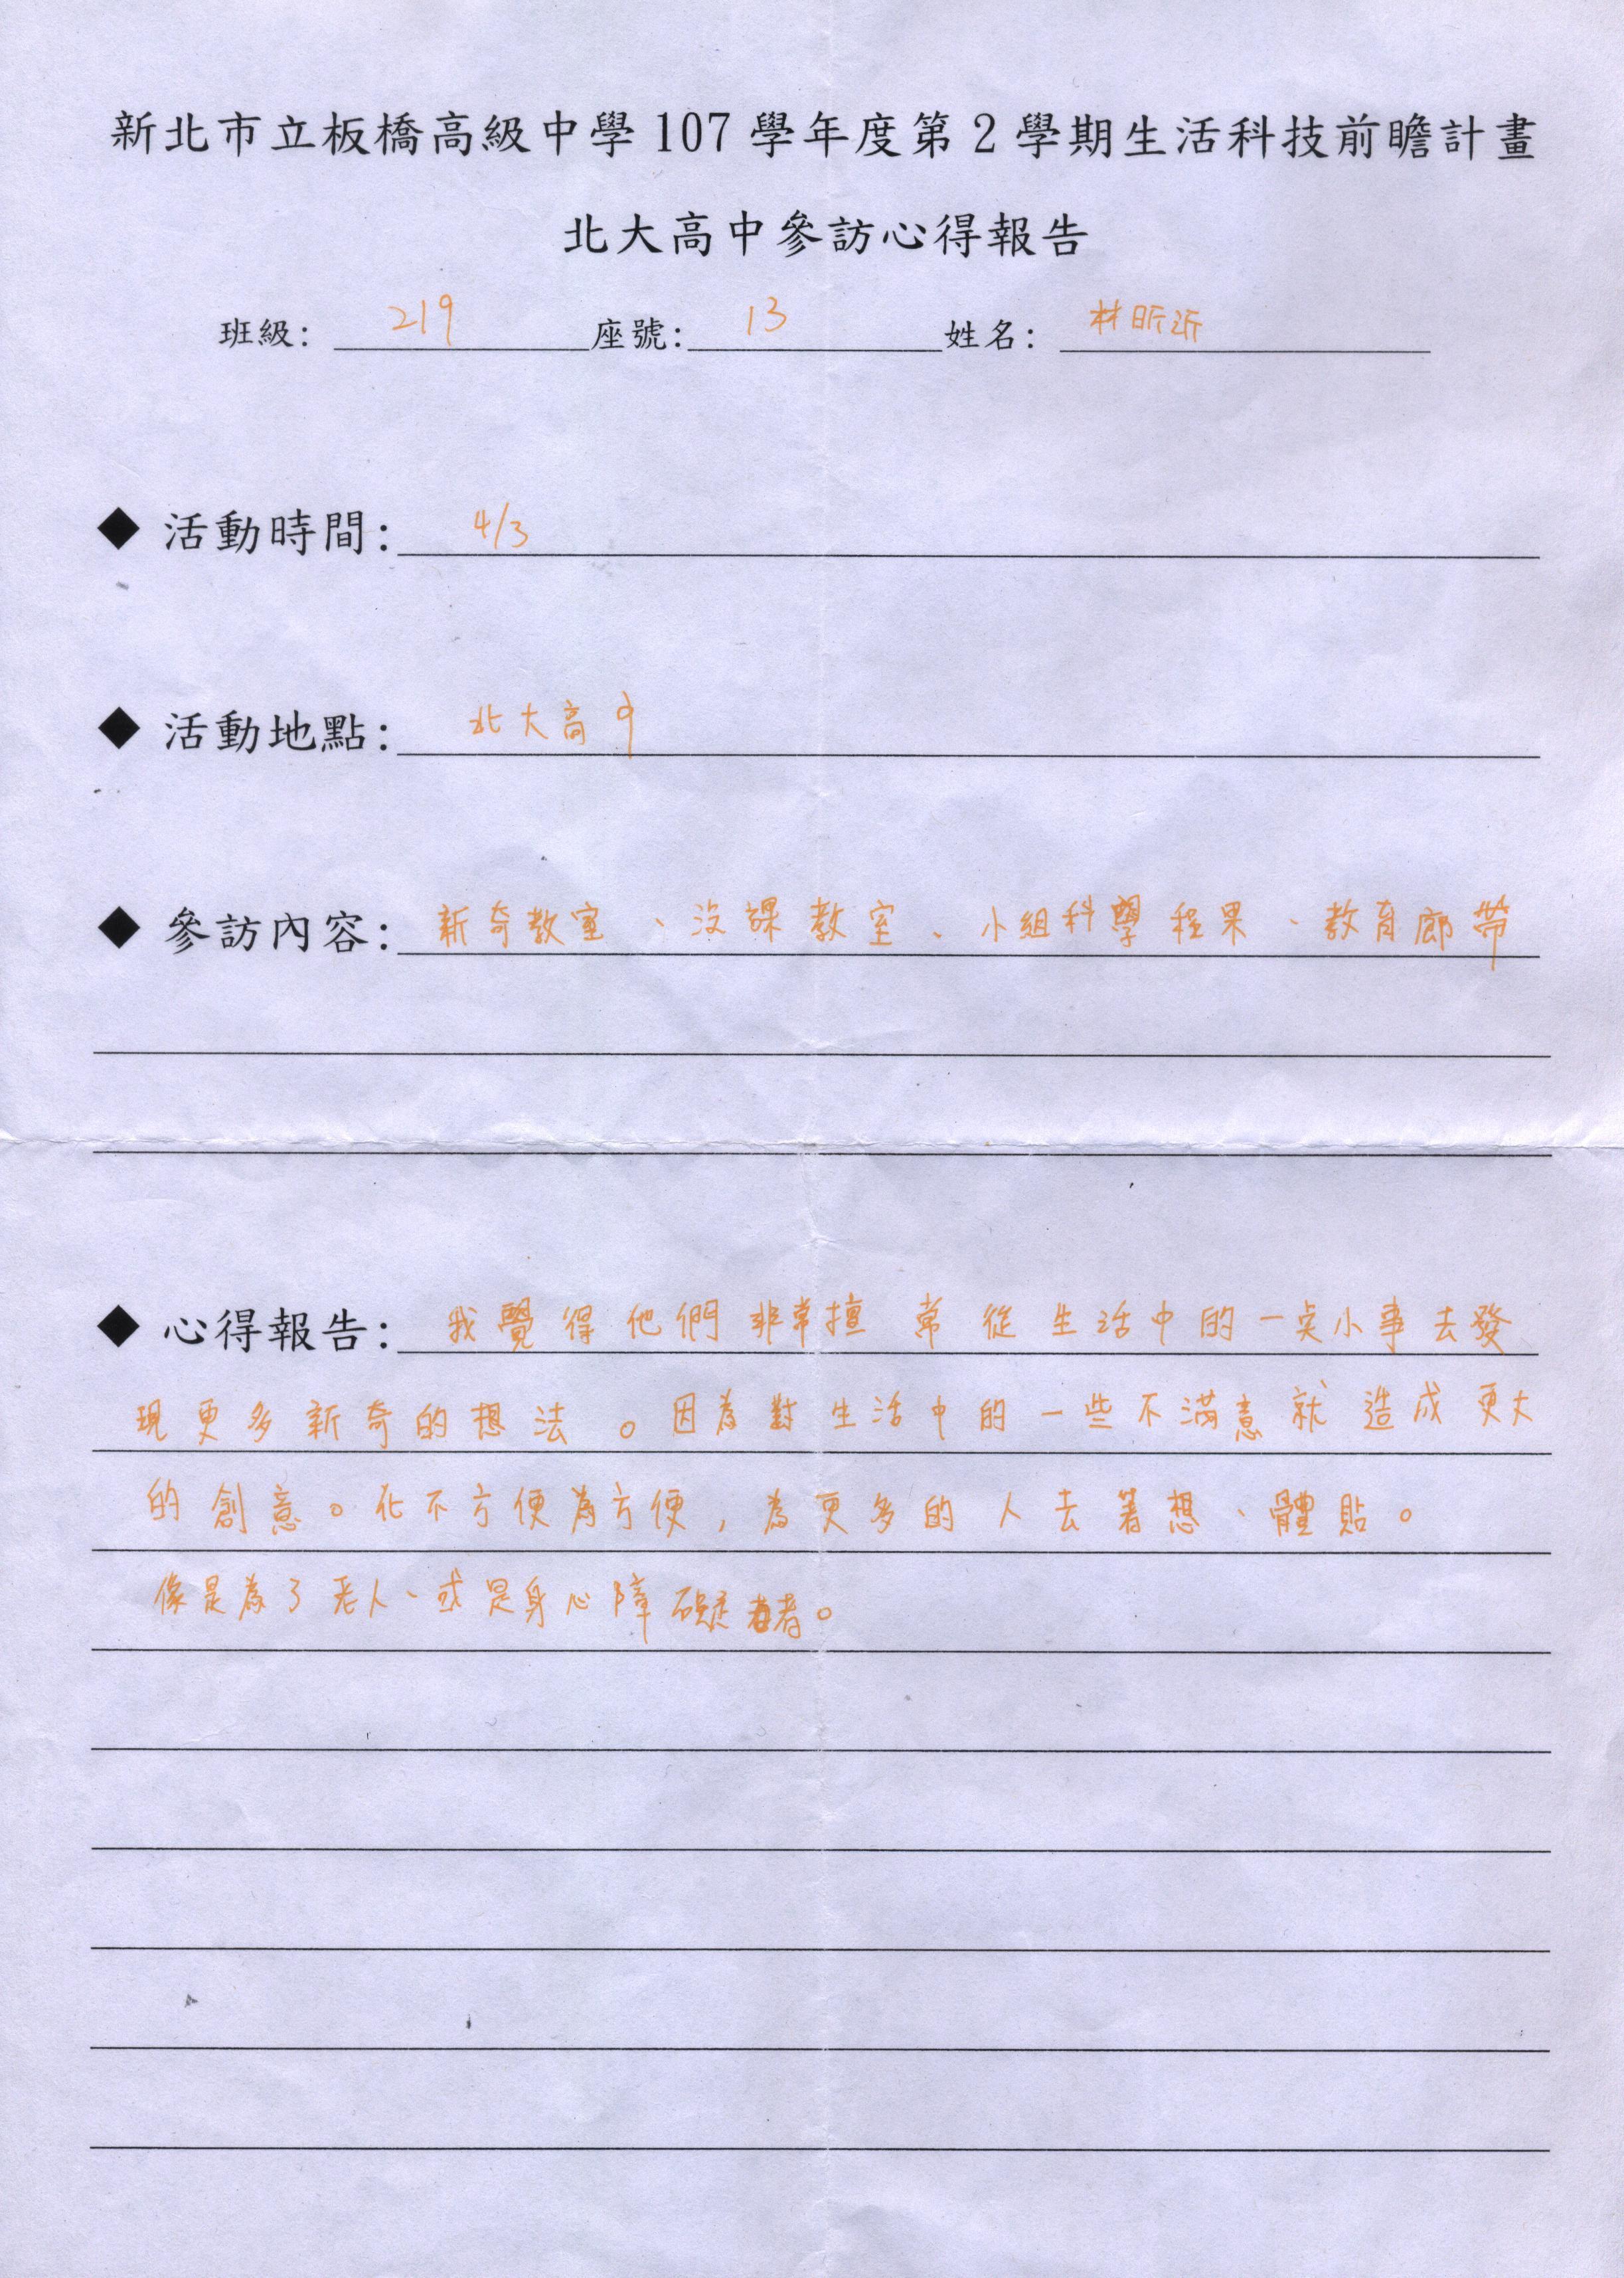 新北市立板橋高級中學 107 學年度第 2 學期生活科技前瞻計畫
北大高中參訪心得報告
班級: 219 座號: 13 姓名: 林昕沂
◆ 活動時間: 4/3
◆ 活動地點: 北大高中
◆ 參訪內容: 新奇教室、沒課教室、小組科學程果、教育廊帶
◆ 心得報告: 我覺得他們非常擅常從生活中的一点小事去發
現更多新奇的想法。因為對生活中的一些不滿意就造成更大
的創意。化不方便為方便,為更多的人去著想、體貼。
像是為了老人、或是身心障礙者。